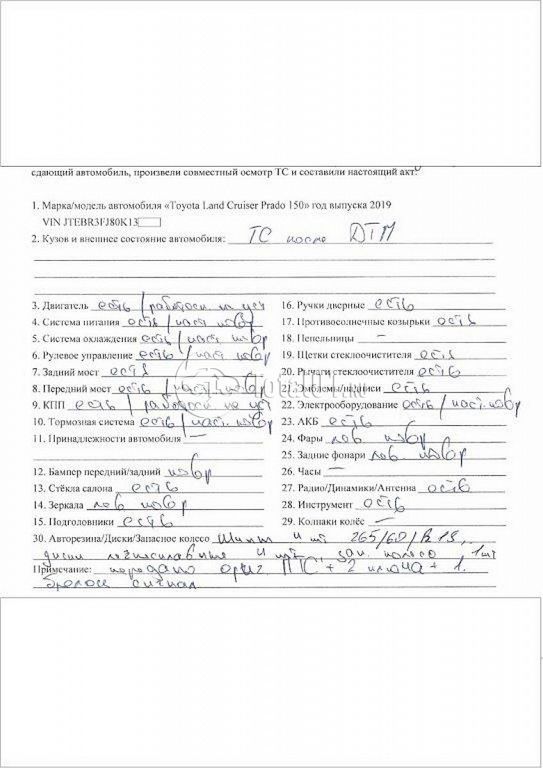 сдающий автомобиль, произвели совместный осмотр ТС и составили настоящий акт:
1. Марка/модель автомобиля «Toyota Land Cruiser Prado 150» год выпуска 2019
VIN JTEBR3FJ80K13
2. Кузов и внешнее состояние автомобиля: ТС после ДТП
3. Двигатель есть / работосп не уст
4. Система питания есть / част повр
5. Система охлаждения есть / част повр
6. Рулевое управление есть / част повр
7. Задний мост есть
8. Передний мост есть / част повр
9. КПП есть / работосп не уст
10. Тормозная система есть / част. повр
11. Принадлежности автомобиля —
12. Бампер передний/задний повр
13. Стёкла салона есть
14. Зеркала лев повр
15. Подголовники есть
16. Ручки дверные есть
17. Противосолнечные козырьки есть
18. Пепельницы —
19. Щетки стеклоочистителя есть
20. Рычаги стеклоочистителя есть
21. Эмблемы/надписи есть
22. Электрооборудование есть / част. повр
23. АКБ есть
24. Фары лев повр
25. Задние фонари лев повр
26. Часы —
27. Радио/Динамики/Антенна есть
28. Инструмент есть
29. Колпаки колёс —
30. Авторезина/Диски/Запасное колесо Шины 4 шт 265/60/R18,
диски легкосплавные 4 шт, зап. колесо 1шт
Примечание: передано ориг ПТС + 2 ключа + 1.
брелок сигнал